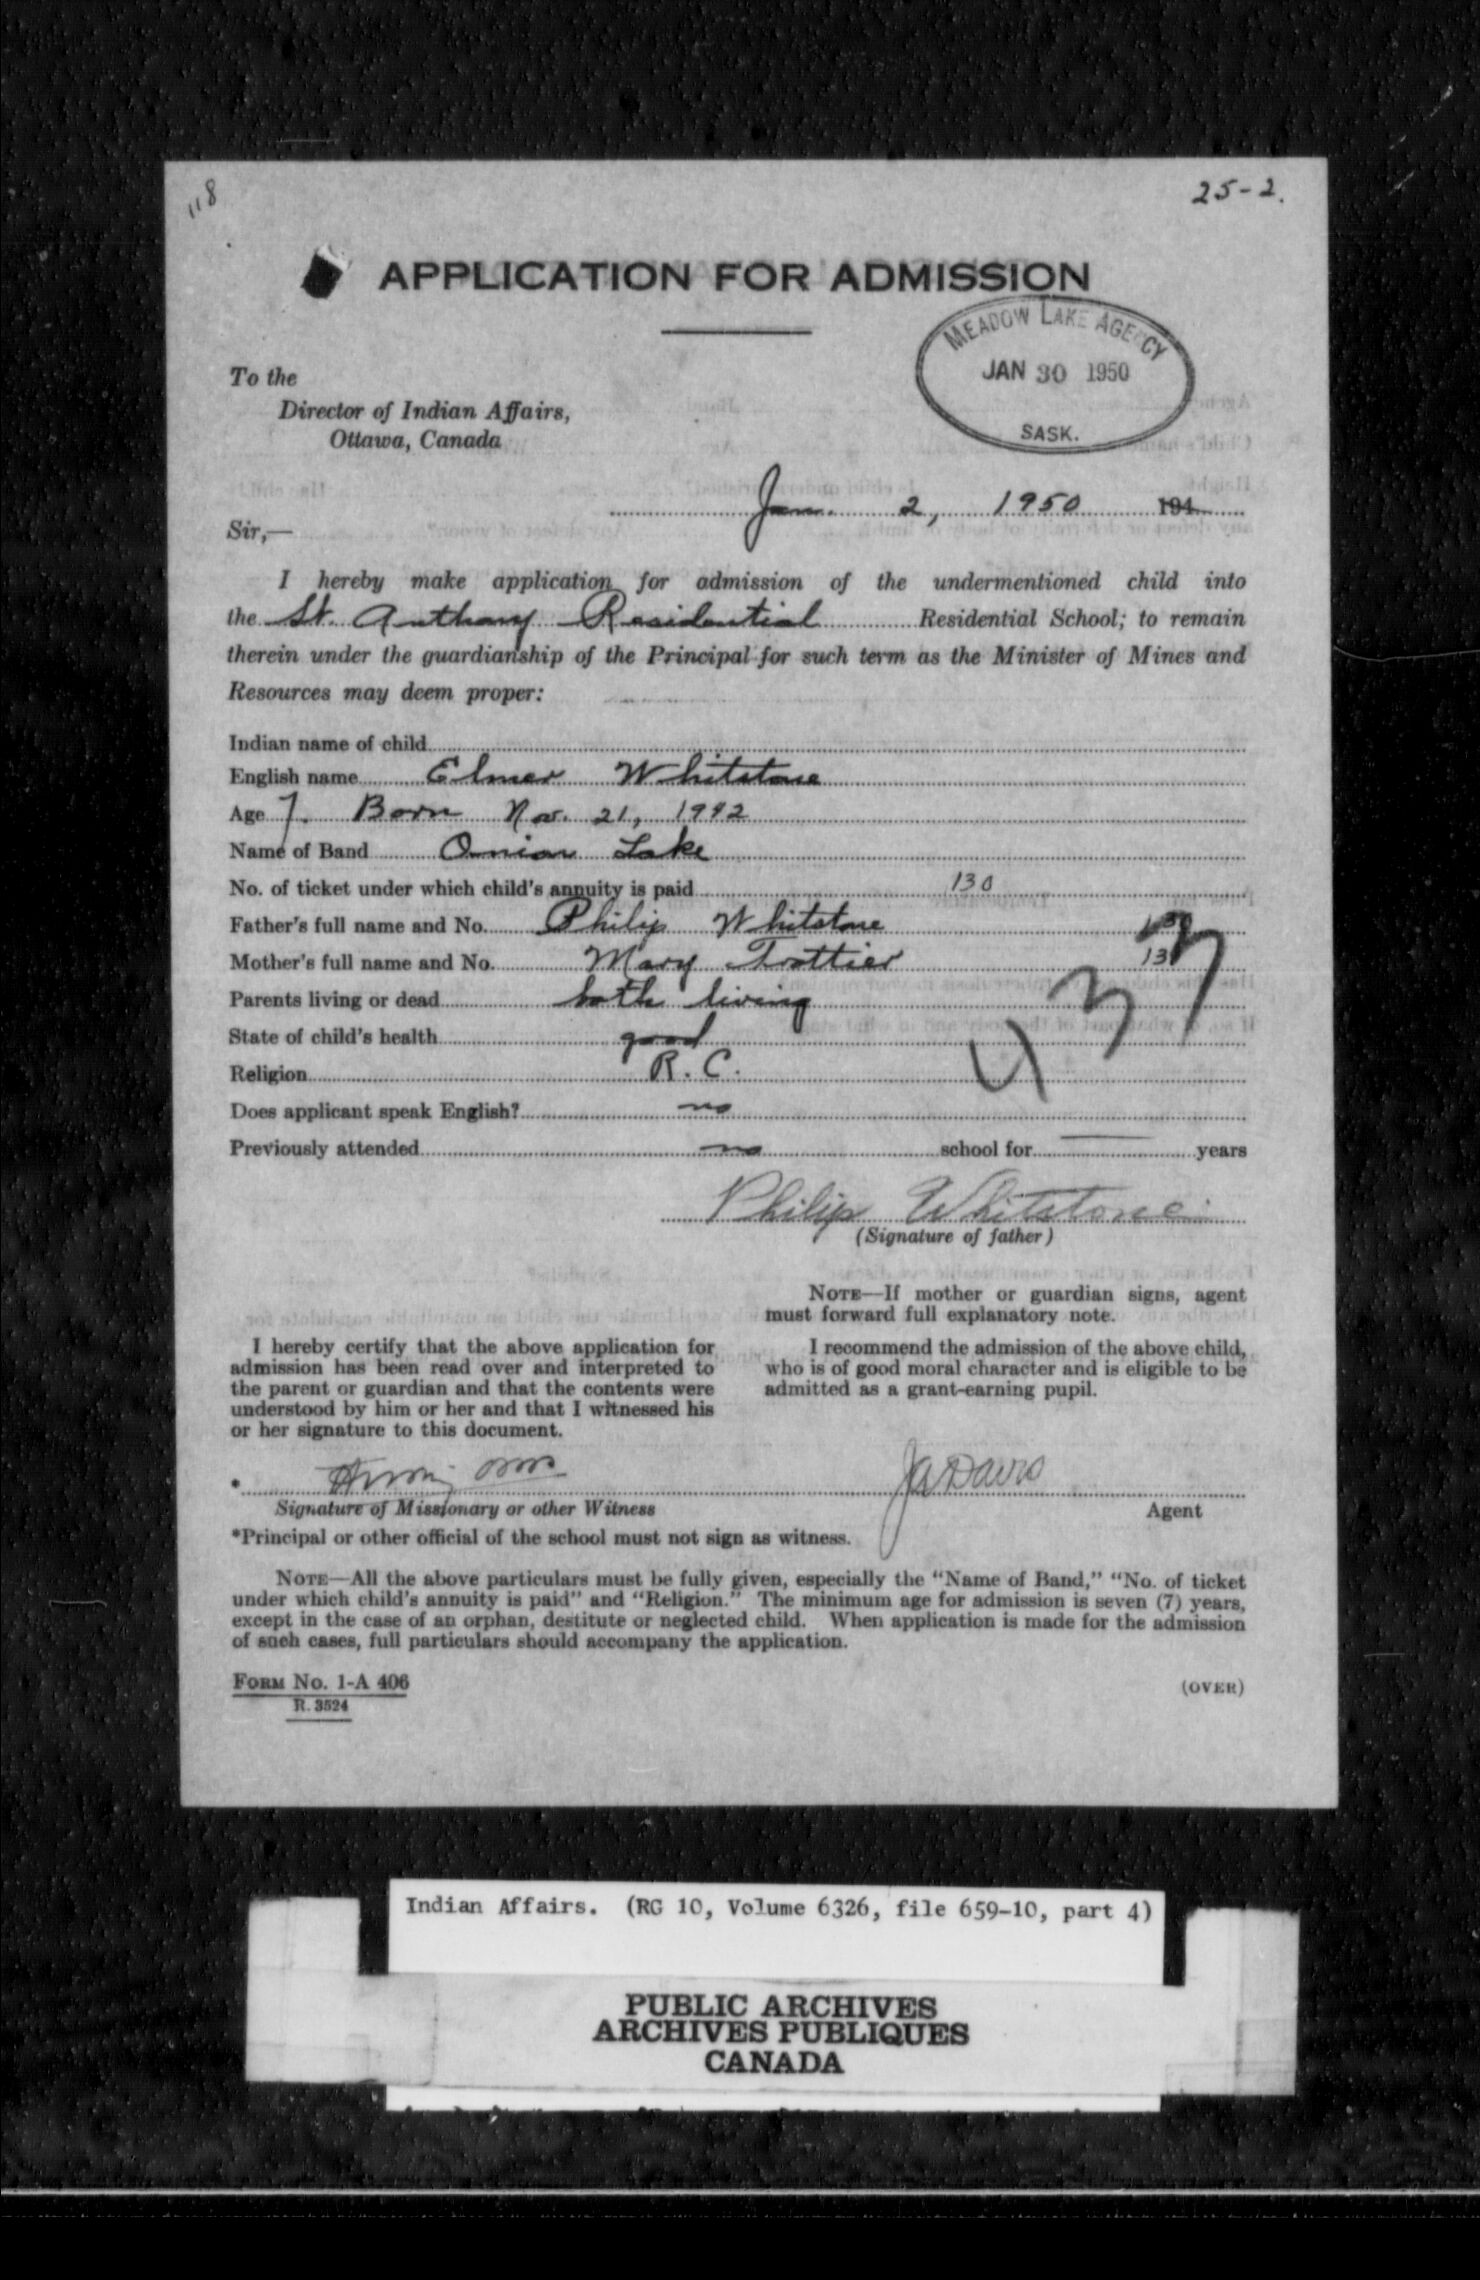 118
25-2.
APPLICATION FOR ADMISSION
MEADOW LAKE AGENCY
JAN 30 1950
SASK.
To the
Director of Indian Affairs,
Ottawa, Canada
Jan. 2, 1950 194
Sir,—
I hereby make application for admission of the undermentioned child into
the St. Anthony Residential Residential School; to remain
therein under the guardianship of the Principal for such term as the Minister of Mines and
Resources may deem proper:
Indian name of child
English name Elmer Whitstone
Age 7. Born Nov. 21, 1942
Name of Band Onion Lake
No. of ticket under which child's annuity is paid 130
Father's full name and No. Philip Whitstone
Mother's full name and No. Mary Trottier
437
Parents living or dead both living
State of child's health good
Religion R. C.
Does applicant speak English? no
Previously attended no school for — years
Philip Whitstone
(Signature of father)
NOTE—If mother or guardian signs, agent
must forward full explanatory note.
I hereby certify that the above application for
admission has been read over and interpreted to
the parent or guardian and that the contents were
understood by him or her and that I witnessed his
or her signature to this document.
I recommend the admission of the above child,
who is of good moral character and is eligible to be
admitted as a grant-earning pupil.
*
JA Davis
Signature of Missionary or other Witness
Agent
*Principal or other official of the school must not sign as witness.
NOTE—All the above particulars must be fully given, especially the "Name of Band," "No. of ticket
under which child's annuity is paid" and "Religion." The minimum age for admission is seven (7) years,
except in the case of an orphan, destitute or neglected child. When application is made for the admission
of such cases, full particulars should accompany the application.
FORM NO. 1-A 406
R. 3524
(OVER)
Indian Affairs. (RG 10, Volume 6326, file 659-10, part 4)
PUBLIC ARCHIVES
ARCHIVES PUBLIQUES
CANADA